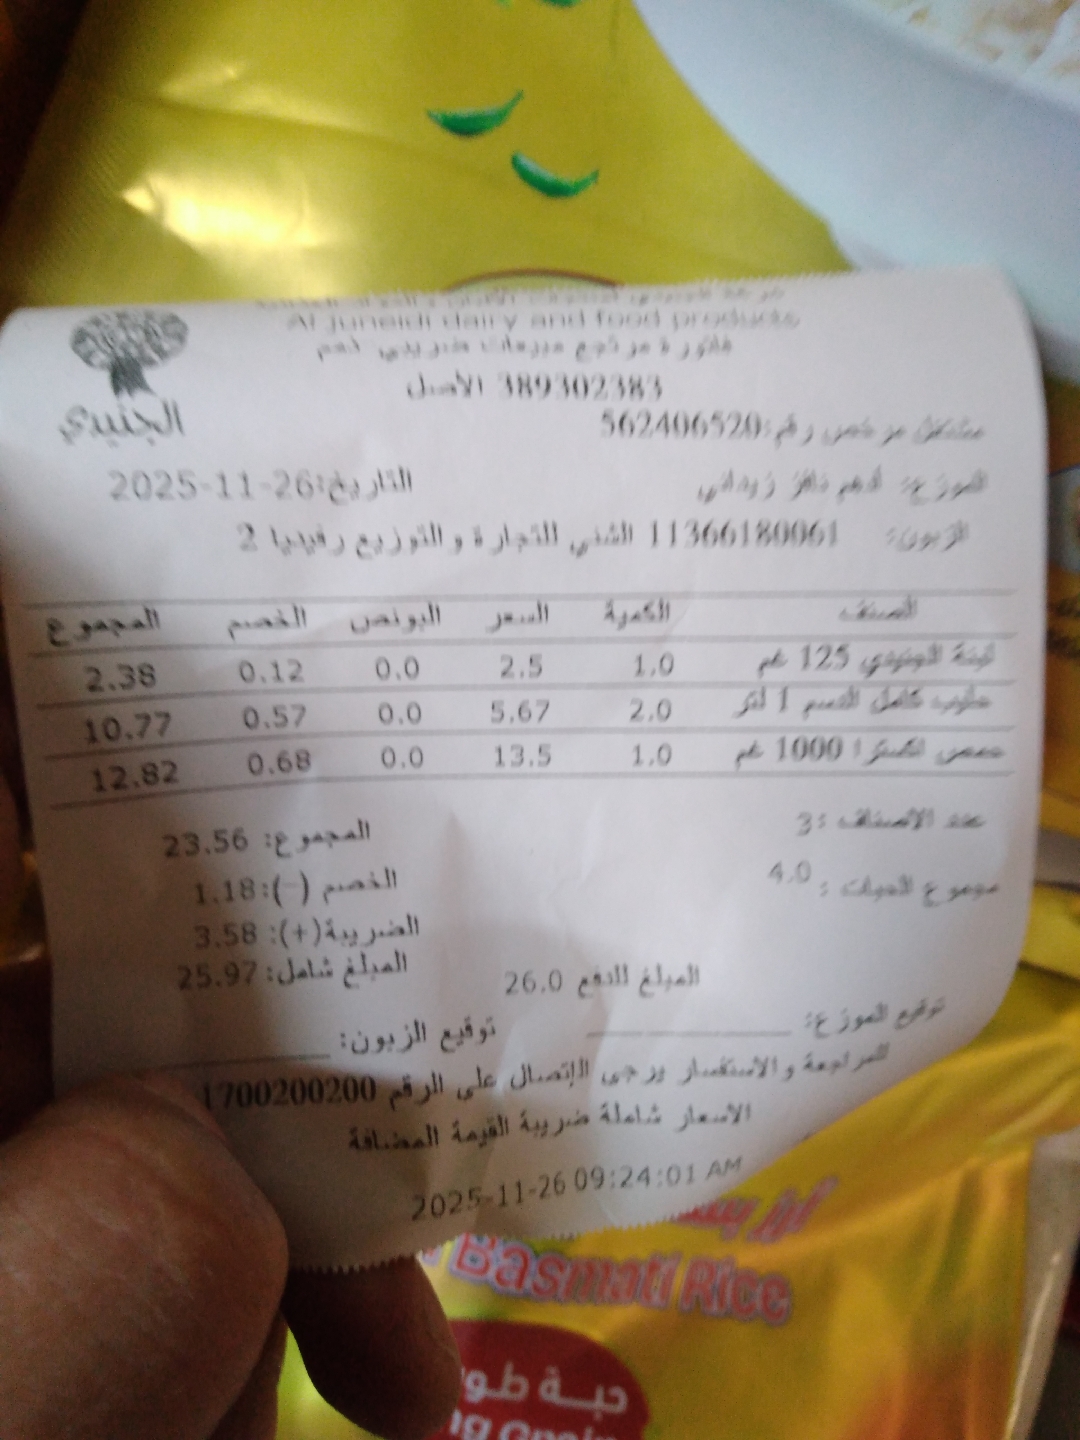 Al Juneidi dairy and food products
فاتورة مرتجع مبيعات ضريبي ذمم
389302383 الأصل
الجنيدي
مشتغل مرخص رقم:562406520
الموزع: ادهم زيداني
التاريخ:2025-11-26
الزبون: 11366180061 الشني للتجارة و التوزيع رفيديا 2
الصنف الكمية السعر البونص الخصم المجموع
لبنة الجنيدي 125 غم 1.0 2.5 0.0 0.12 2.38
حليب كامل الدسم 1 لتر 2.0 5.67 0.0 0.57 10.77
حمص اكسترا 1000 غم 1.0 13.5 0.0 0.68 12.82
عدد الاصناف :3
المجموع: 23.56
مجموع الحبات : 4.0
الخصم (-):1.18
الضريبة(+): 3.58
المبلغ شامل: 25.97
المبلغ للدفع 26.0
توقيع الموزع:
توقيع الزبون:
للمراجعة و الاستفسار يرجى الإتصال على الرقم 1700200200
الاسعار شاملة ضريبة القيمة المضافة
2025-11-26 09:24:01 AM
Basmati Rice
حبة طو